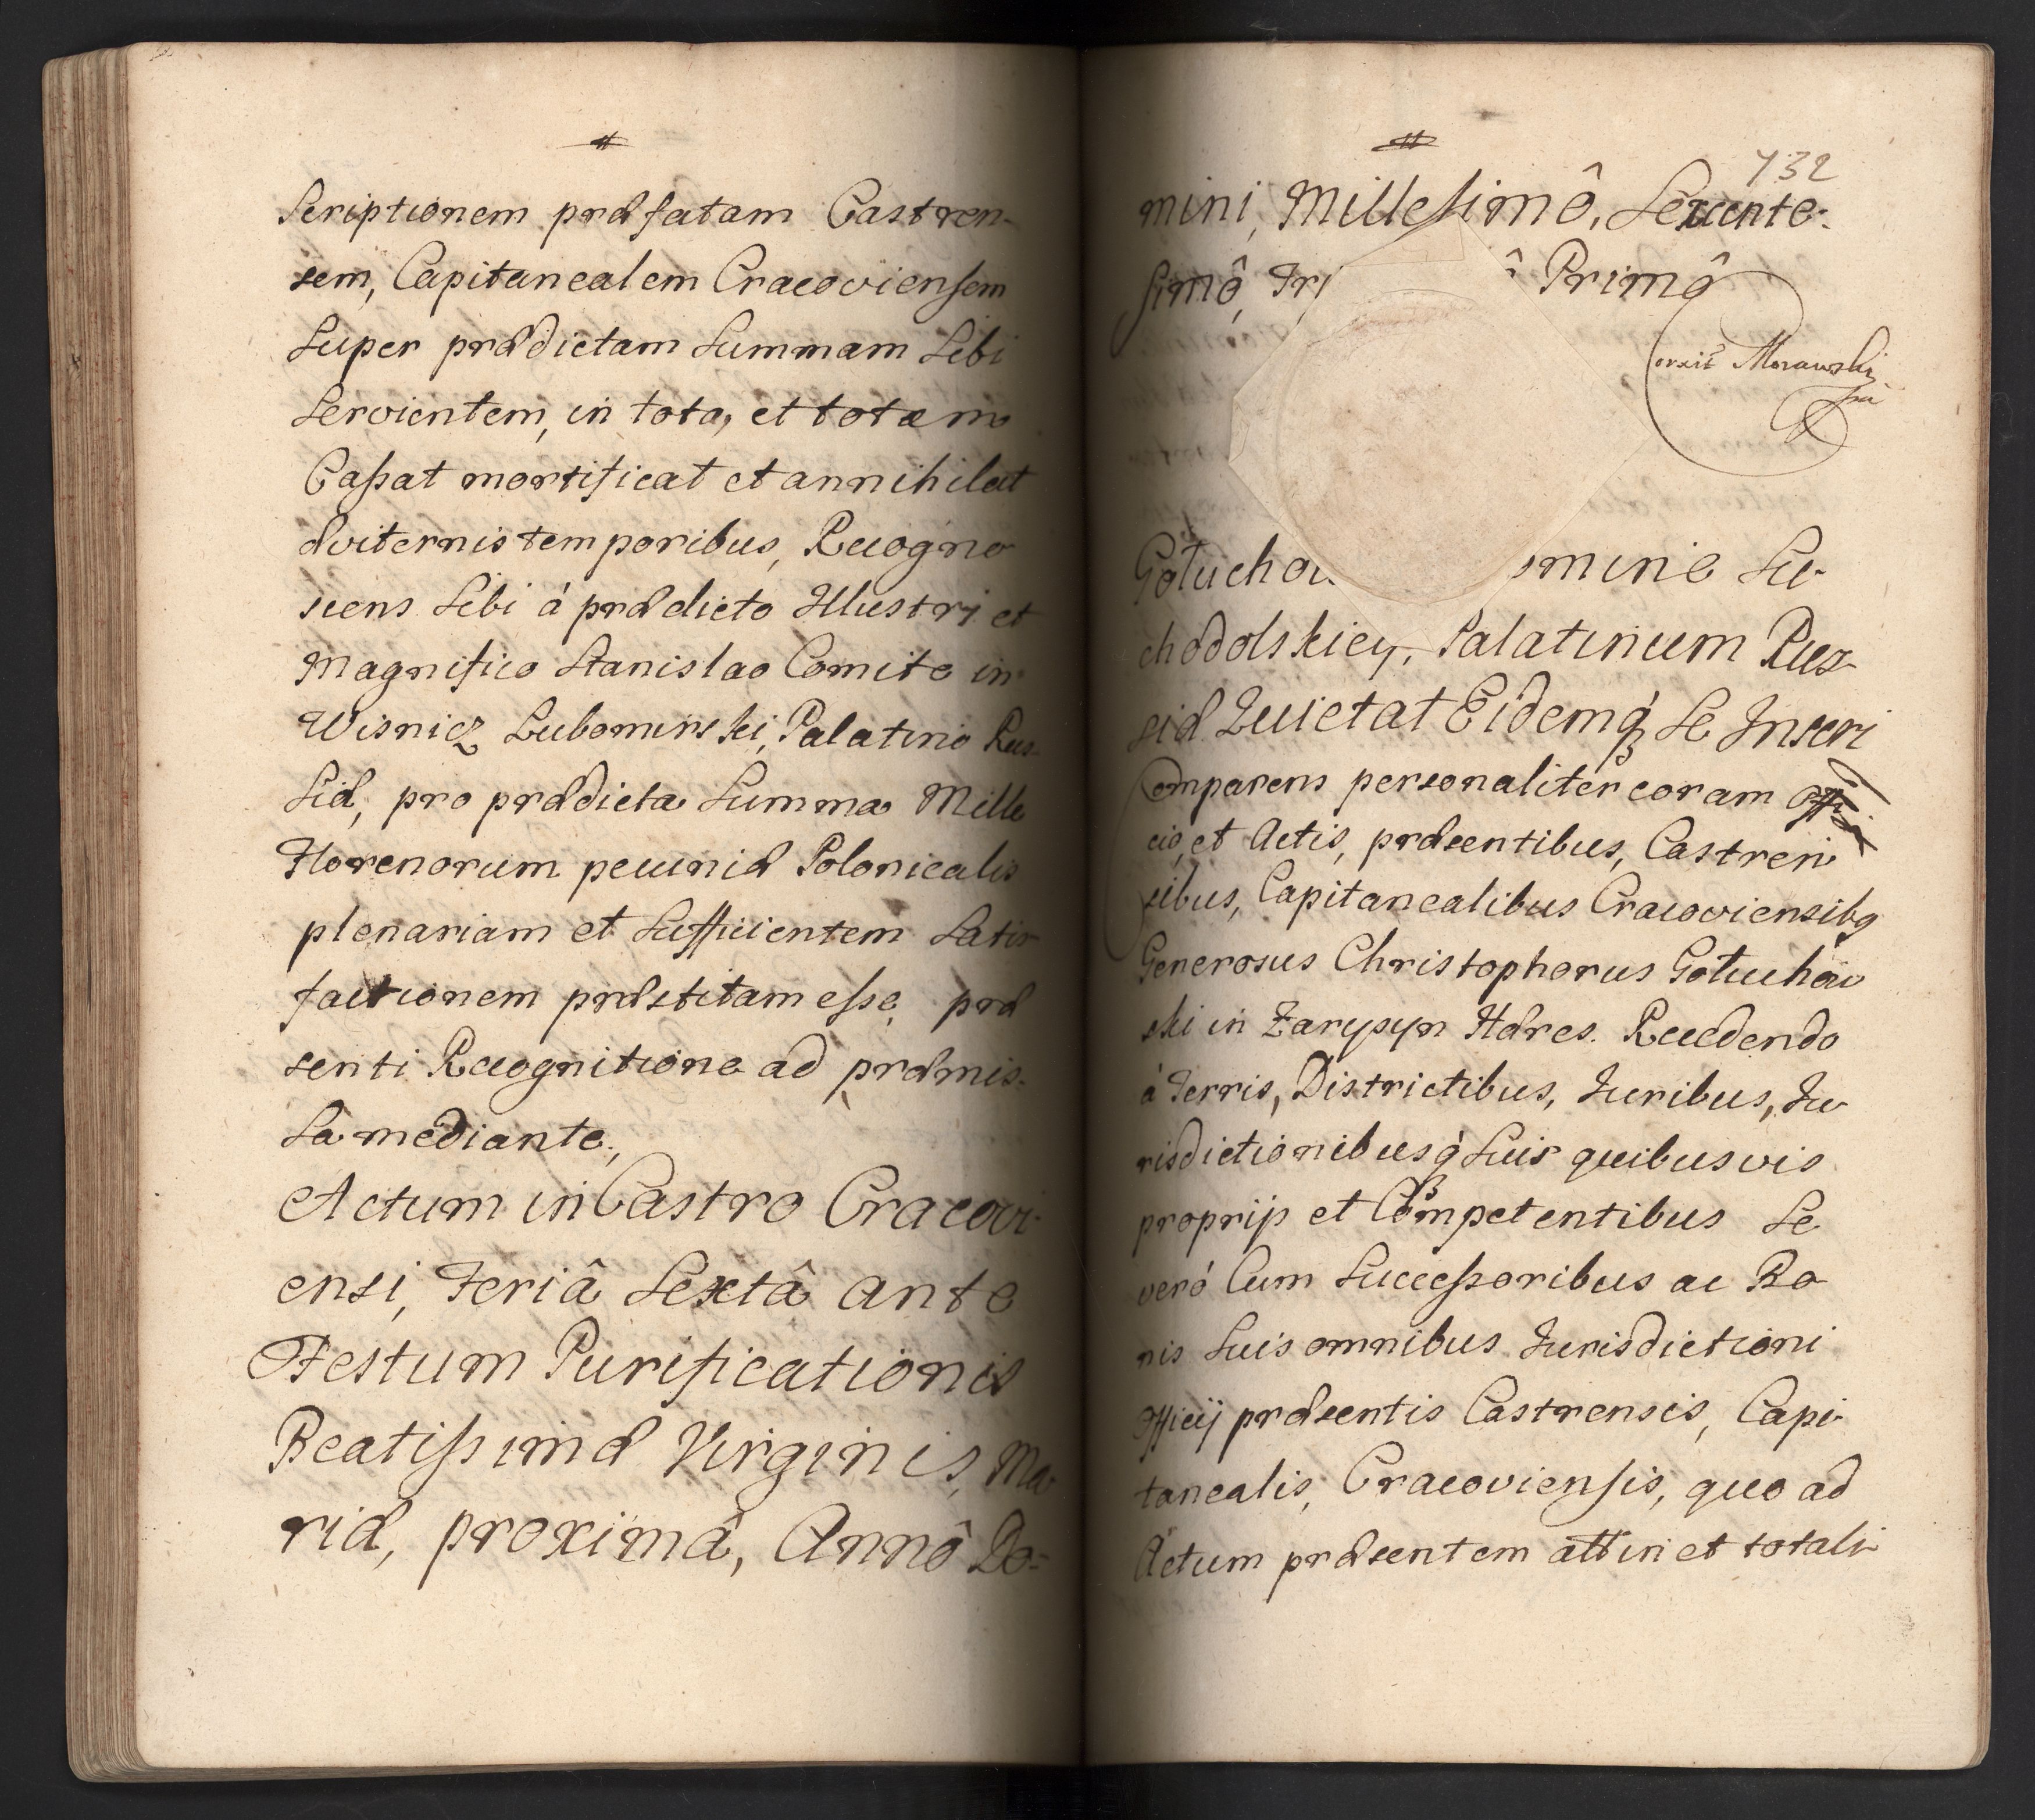 Scriptionem præfatam Castren-
sem, Capitanealem Cracoviensem
Super prædictam Summam Sibi
Servientem, in toto, et totam
Cassat mortificat et annihilat
æviternis temporibus, Recogno
scens Sibi à prædicto Illustri et
Magnifico Stanislao Comite in
Wisnicz Lubomirski, Palatino Rus-
siæ, pro prædicta Summa Mille
Florenorum pecuniæ Polonicalis
plenariam et Sufficientem Satis
factionem præstitam esse, præ
senti Recognitione ad præmis-
sa mediante.
Actum in Castro Cracovi-
ensi, Feriâ Sextâ ante
Festum Purificationis
Beatissimæ Virginis, Ma-
riæ, proximâ, Annô Do-
732
mini, Millesimô, Sexcente-
simô, Tri ô Primô
Morawski
Gołuchow omine Su-
chodolskiey, Palatinum Rus-
siæ Quietat Eidemq́ Se Inscri
Comparens personaliter coram Offi
cio, et Actis, præsentibus, Castren
sibus, Capitanealibus Cracoviensibq
Generosus Christophorus Gołuchow
ski in Zarysyn Hæres. Recedendo
à Terris, Districtibus, Juribus, Ju
risdictionibusq́ Suis quibusvis
proprijs et Competentibus Se
verò Cum Successoribus ac Bo
nis Suis omnibus Jurisdictioni
Officij præsentis Castrensis, Capi-
tanealis, Cracoviensis, quo ad
Actum præsentem attin et totali